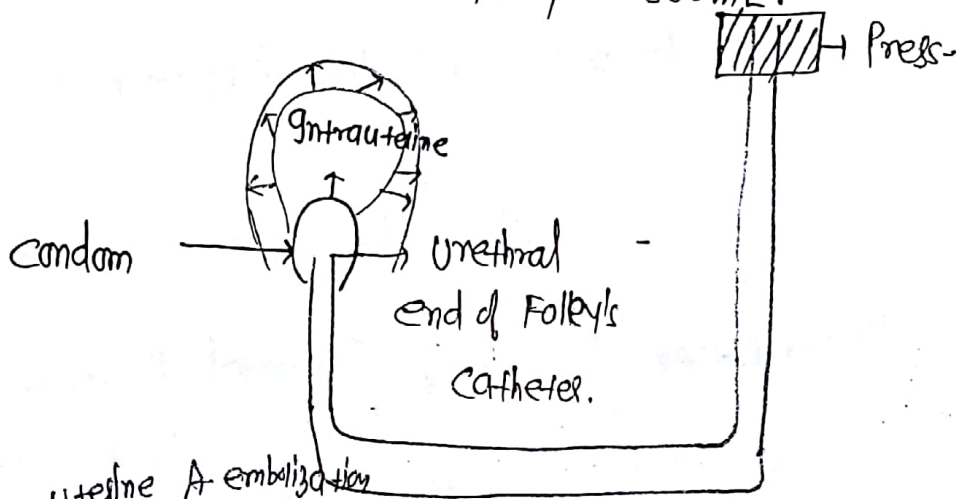 Press-
Intrauterine
Condom
Urethral
end of Folley's
Catheter.
uterine A embolization